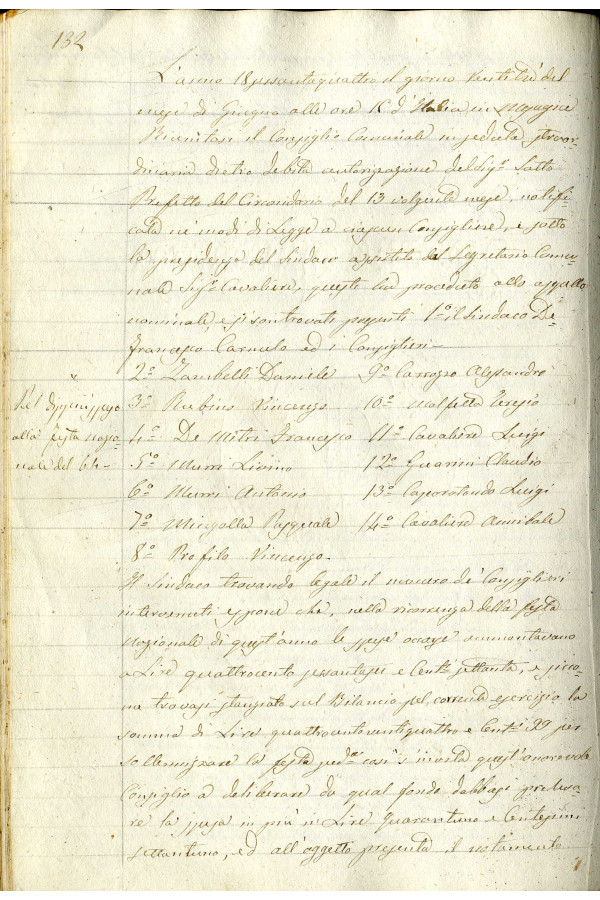 132
L'anno 18sessantaquattro il giorno ventitré del
mese di Giugno alle ore 15 d'Italia in Mesagne
Riunitosi il Consiglio Comunale in seduta straor=
dinaria dietro debita autorizzazione del Sig.r Sotto
Prefetto del Circondario del 13 volgente mese, notifi=
cata ne' modi di Legge a ciascun Consigliere, e sotto
la presidenza del Sindaco assistito dal Segretario Comu=
nale Sig.r Cavaliere, questi ha proceduto allo appello
nominale, e si son trovati presenti 1.o il Sindaco De
Francesco Carmelo ed i Consiglieri—
2.o Zambelli Daniele 9.o Carrozzo Alessandro
3.o Rubino Vincenzo 10.o Malfetta
4.o De Mitri Francesco 11.o Cavaliere Luigi
5.o Murri Livino 12.o Guarini Claudio
6.o Murri Antonio 13.o Caporotondo Luigi
7.o Mingolla Pasquale 14.o Cavaliere Annibale
8.o Profilo Vincenzo.
Pel
alla festa nazio=
nale del 64—
Il Sindaco trovando legale il numero de' Consiglieri
intervenuti espone che, nella ricorrenza della festa
Nazionale di quest'anno le spese occorse ammontavano
a Lire quattrocento sessantasei e Cent.i settanta, e sicco=
me trovasi stanziato sul Bilancio pel corrente esercizio la
somma di Lire quattrocentoventiquattro e Cent.i 99 per
sollennizzare la festa così s'invita quest'onorevole
Consiglio a deliberare da qual fondo debbasi preleva=
re la spesa in più in Lire quarantuno e Centesimi
settantuno, ed all'oggetto presenta il notamento